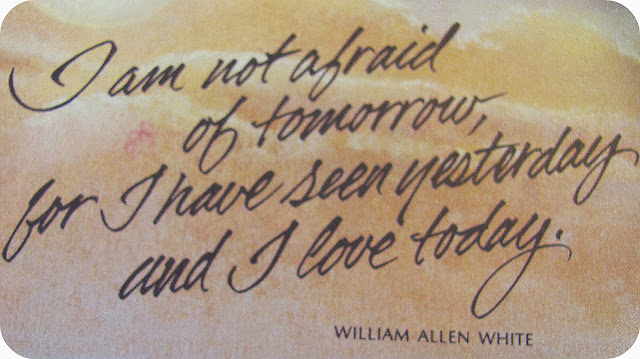 I am not afraid
of tomorrow,
for I have seen yesterday
and I love today.
WILLIAM ALLEN WHITE